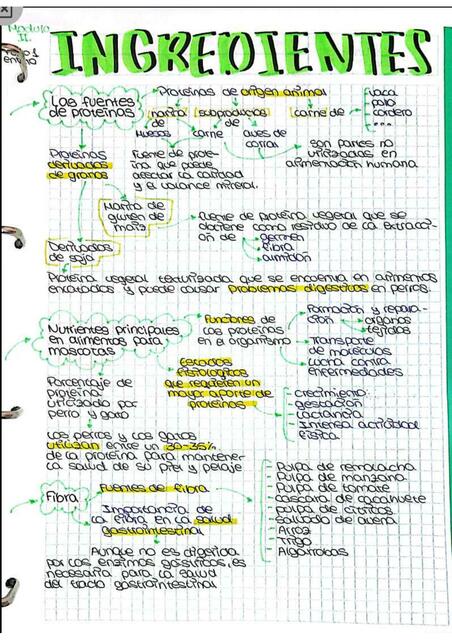 Modulo
II.
INGREDIENTES
Las fuentes
de proteínas
Proteínas de origen animal
harina
de
huesos
subproductos
de
carne
aves de
corral
carne de
vaca
pollo
cordero
...
son partes no
utilizadas en
alimentación humana
Fuente de prote-
ína que puede
afectar la calidad
y el balance mineral.
Proteínas
derivadas
de granos
Harina de
gluten de
maíz
Fuente de proteína vegetal que se
obtiene como residuo de la extracci-
ón de
germen
fibra
almidón
Derivados
de soja
Proteína vegetal texturizada que se encuentra en alimentos
enlatados y puede causar problemas digestivos en perros.
Nutrientes principales
en alimentos para
mascotas
Funciones de
las proteínas
en el organismo
Formación y repara-
ción
órganos
tejidos
Transporte
de moléculas
Lucha contra
enfermedades
Estados
fisiológicos
que requieren un
mayor aporte de
proteínas
- crecimiento
- gestación
- Lactancia
- Intensa actividad
física
Porcentaje de
proteína
utilizado por
perro y gato
Los perros y los gatos
utilizan entre un 30-35%
de la proteína para mantener
la salud de su piel y pelaje
Fibra
Fuentes de fibra
- Pulpa de remolacha
- Pulpa de manzana
- Pulpa de tomate
- Cáscara de cacahuete
- Pulpa de cítricos
- Salvado de avena
- Arroz
- Trigo
- Algarrobas
Importancia de
la fibra en la salud
gastrointestinal
Aunque no es digerida
por las enzimas gástricas, es
necesaria para la salud
del tracto gastrointestinal